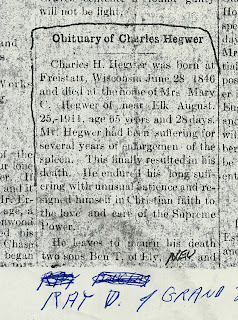 will not be light.
Obituary of Charles Hegwer
Charles H. Hegwer was born at
Freistatt, Wisconsin June 28, 1846
and died at the home of Mrs. Mary
C. Hegwer of near Elk August.
25, 1911, age 65 years and 28 days.
Mr. Hegwer had been suffering for
several years of enlargemen of the
spleen. This finally resulted in his
death. He endured his long suf-
fering with unusual patience and re-
signed himself in Christian faith to
the love and care of the Supreme
Power.
He leaves to mourn his death
two sons Ben T. of Ely, NEV and
RAY D. 1 GRAND